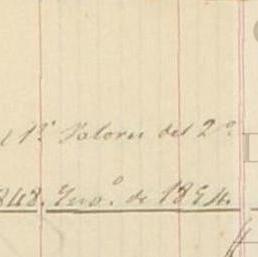 l 1º Valores del 2º
848. Eneº. de 1854.